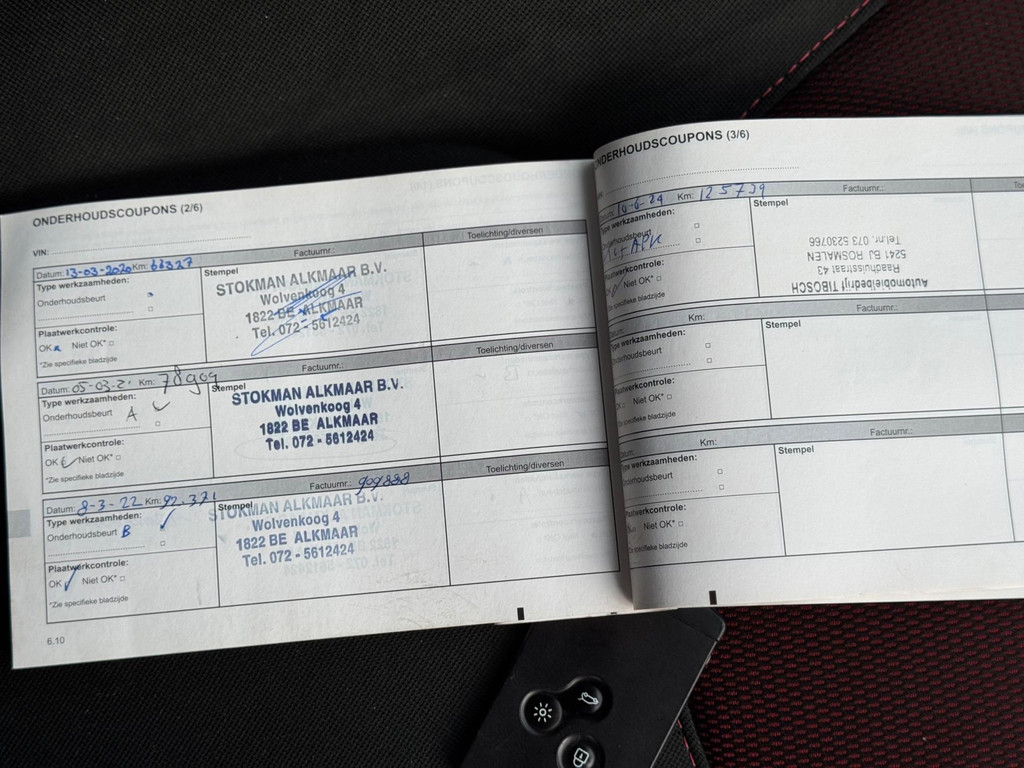 ONDERHOUDSCOUPONS (2/6)
VIN:
Datum: 13-03-2020 Km: 68327
Factuurnr.:
Toelichting/diversen
Type werkzaamheden:
Onderhoudsbeurt
Plaatwerkcontrole:
OK Niet OK*
*Zie specifieke bladzijde
Stempel
STOKMAN ALKMAAR B.V.
Wolvenkoog 4
1822 BE ALKMAAR
Tel. 072 - 5612424
Datum: 05-03-2 Km: 78909
Factuurnr.:
Toelichting/diversen
Type werkzaamheden:
Onderhoudsbeurt A
Plaatwerkcontrole:
OK Niet OK*
*Zie specifieke bladzijde
Stempel
STOKMAN ALKMAAR B.V.
Wolvenkoog 4
1822 BE ALKMAAR
Tel. 072 - 5612424
Datum: 8-3-22 Km: 92.371
Factuurnr.: 909888
Toelichting/diversen
Type werkzaamheden:
Onderhoudsbeurt B
Plaatwerkcontrole:
OK Niet OK*
*Zie specifieke bladzijde
Stempel
STOKMAN ALKMAAR B.V.
Wolvenkoog 4
1822 BE ALKMAAR
Tel. 072 - 5612424
6.10
ONDERHOUDSCOUPONS (3/6)
Km: 125739
Factuurnr.:
Type werkzaamheden:
Onderhoudsbeurt
+ APK
Plaatwerkcontrole:
Niet OK*
Zie specifieke bladzijde
Stempel
Automobielbedrijf TIBOSCH
Raadhuisstraat 43
5241 BJ ROSMALEN
Tel.nr. 073 5230766
Km:
Factuurnr.:
Type werkzaamheden:
Onderhoudsbeurt
Plaatwerkcontrole:
Niet OK*
Zie specifieke bladzijde
Stempel
Km:
Factuurnr.:
Type werkzaamheden:
Onderhoudsbeurt
Plaatwerkcontrole:
Niet OK*
Zie specifieke bladzijde
Stempel